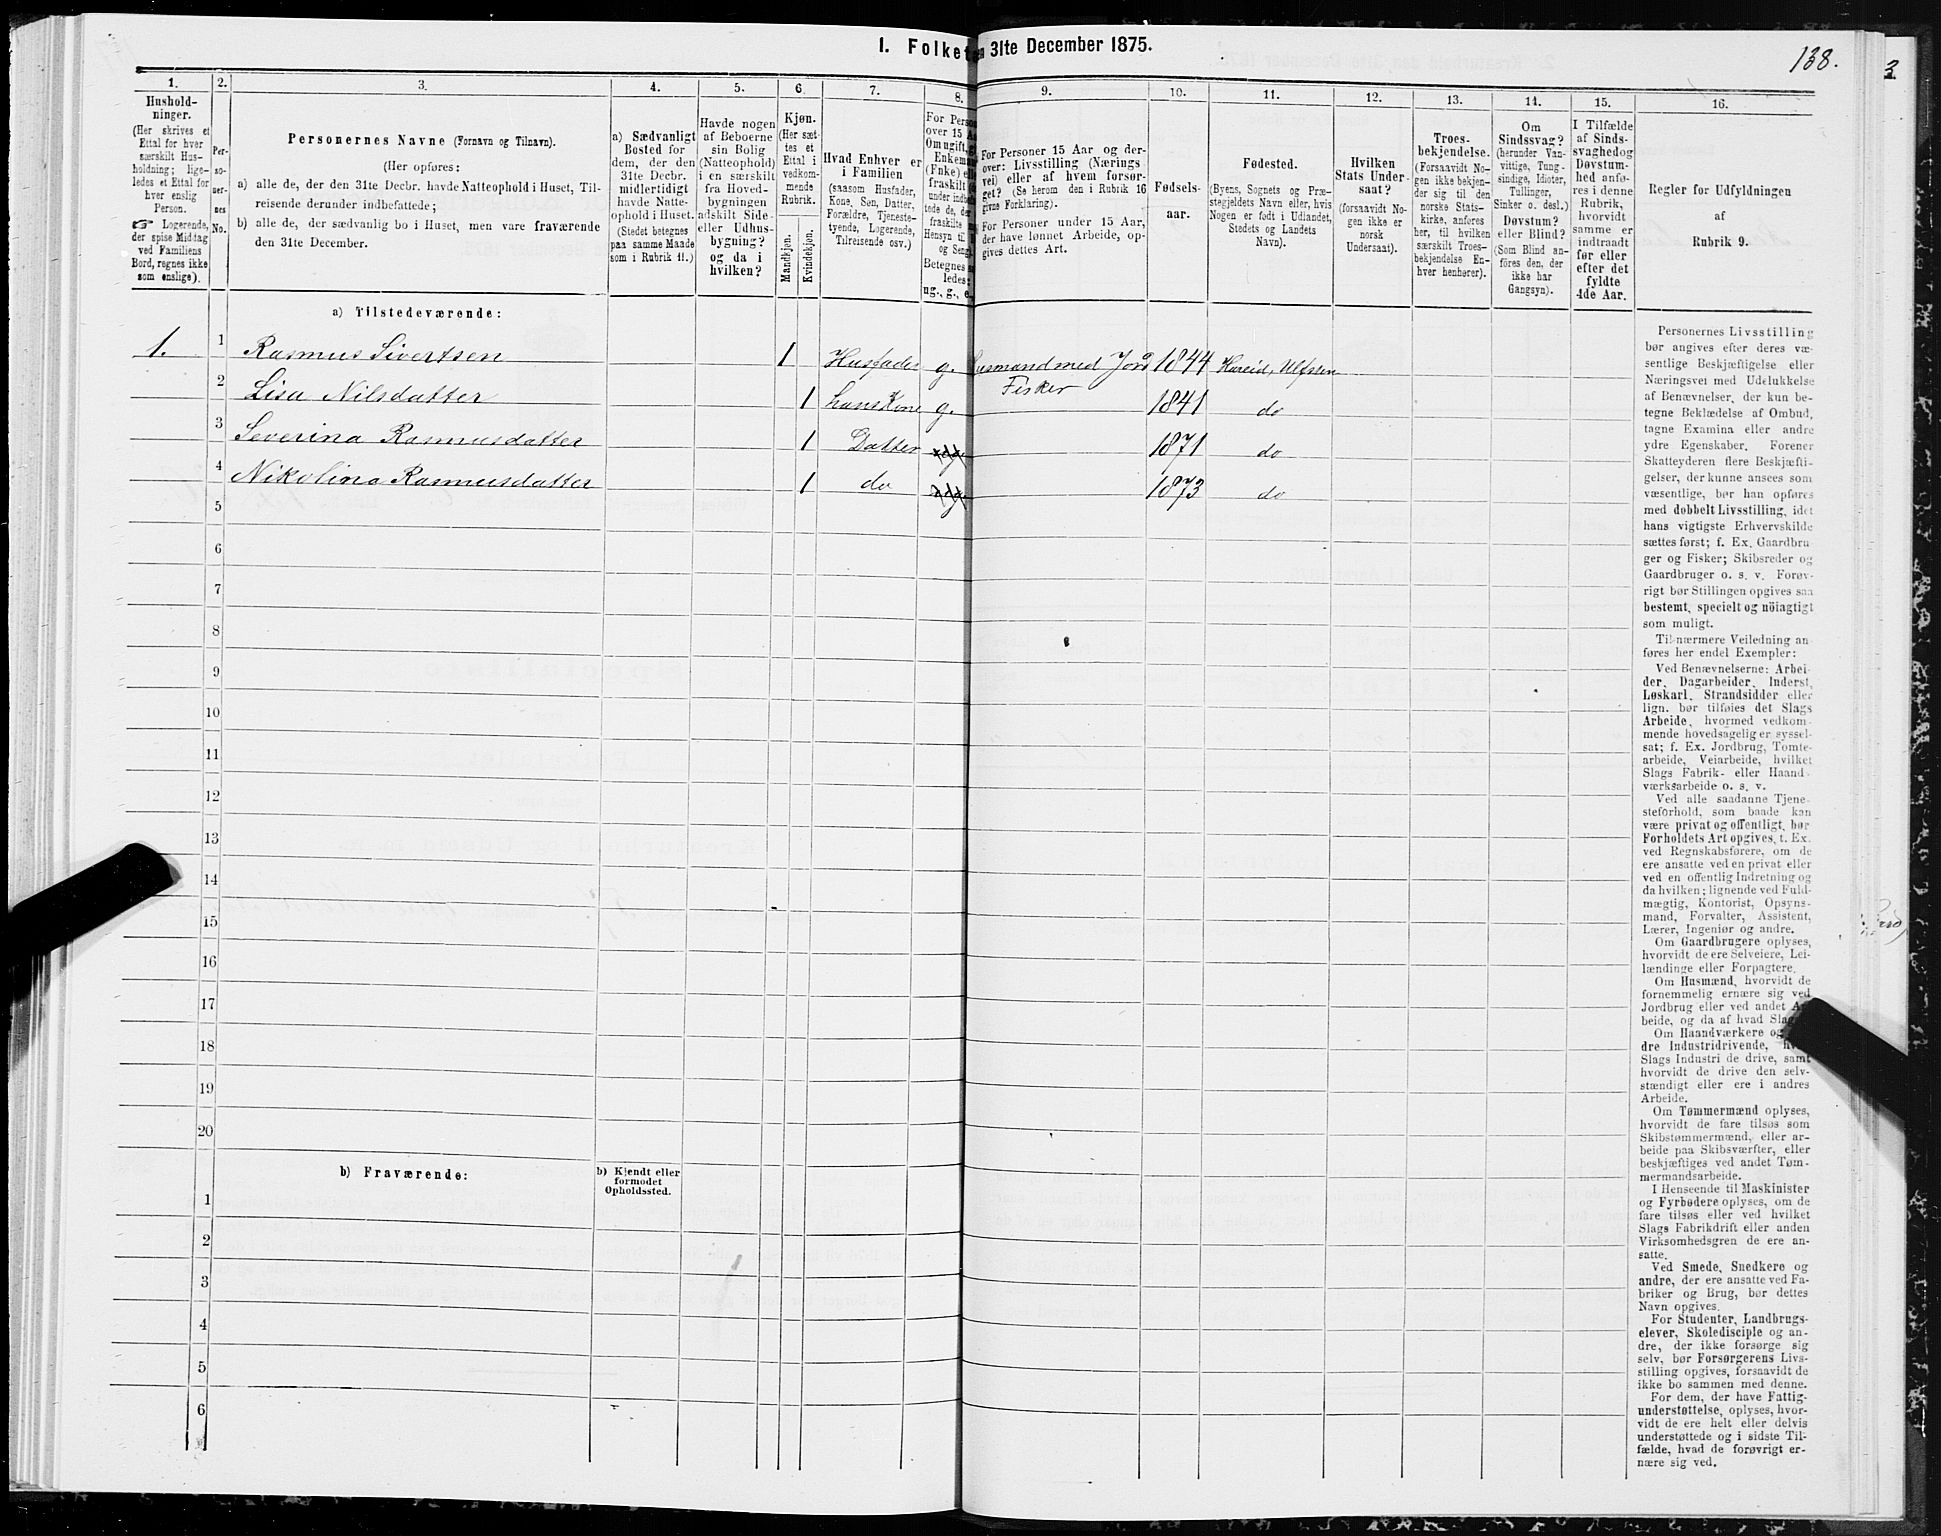 1. Folket
n 31te December 1875.
138.
3
1.
Hushold-
ninger.
(Her skrives et
Ettal for hver
særskilt Hus-
holdning; lige-
ledes et Ettal for
hver enslig
Person.
☞ Logerende,
der spise Middag
ved Familiens
Bord, regnes ikke
som enslige).
2.
Per-
so-
ner-
nes
No.
3.
Personernes Navne (Fornavn og Tilnavn).
(Her opføres:
a) alle de, der den 31te Decbr. havde Natteophold i Huset, Til-
reisende derunder indbefattede;
b) alle de, der sædvanlig bo i Huset, men vare fraværende
den 31te December.
4.
a) Sædvanligt
Bosted for
dem, der den
31te Decbr.
midlertidigt
havde Natte-
ophold i Huset.
(Stedet betegnes
paa samme Maade
som i Rubrik 11.)
5.
Havde nogen
af Beboerne
sin Bolig
(Natteophold)
i en særskilt
fra Hoved-
bygningen
adskilt Side-
eller Udhus-
bygning?
og da i
hvilken?
6.
Kjøn.
(Her sæt-
tes et
Ettal i
vedkom-
mende
Rubrik.
Mandkjøn.
Kvindekjøn.
7.
Hvad Enhver er
i Familien
(saasom Husfader,
Kone, Søn, Datter,
Forældre, Tjeneste-
tyende, Logerende,
Tilreisende osv.)
8.
For Perso
over 15 A
Om ugift, g
Enkema
(Enke) ell
fraskilt (
under indbe
tede de, de
fraskilte
Hensyn til
og Seng
Betegnes s
ledes:
ug., g., e.
9.
For Personer 15 Aar og der-
over: Livsstilling (Nærings-
vei) eller af hvem forsør-
get? (Se herom den i Rubrik 16
givne Forklaring).
For Personer under 15 Aar,
der have lønnet Arbeide, op-
gives dettes Art.
10.
Fødsels-
aar.
11.
Fødested.
(Byens, Sognets og Præ-
stegjeldets Navn eller, hvis
Nogen er født i Udlandet,
Stedets og Landets
Navn).
12.
Hvilken
Stats Under-
saat?
(forsaavidt No-
gen ikke er
norsk
Undersaat).
13.
Troes-
bekjendelse.
(Forsaavidt No-
gen ikke bekjen-
der sig til den
norske Stats-
kirke, anføres
her, til hvilken
særskilt Troes-
bekjendelse En-
hver henhører).
14.
Om
Sindssvag?
(herunder Van-
vittige, Tung-
sindige, Idioter,
Tullinger,
Sinker o. desl.)
Døvstum?
eller Blind?
(Som Blind an-
føres den, der
ikke har
Gangsyn).
15.
I Tilfælde
af Sinds-
svaghed og
Døvstum-
hed anfø-
res i denne
Rubrik,
hvorvidt
samme er
indtraadt
før eller
efter det
fyldte
4de Aar.
16.
Regler for Udfyldningen
af
Rubrik 9.
a) Tilstedeværende:
1. 1 Rasmus Sivertsen 1 Husfader g. Husmand med Jord 1844 Hareid, Ulfsten
Fisker
2 Lisa Nilsdatter 1 hans Kone g. 1841 do
3 Severina Rasmusdatter 1 Datter 1871 do
4 Nikolina Rasmusdatter 1 do 1873 do
5
6
7
8
9
10
11
12
13
14
15
16
17
18
19
20
b) Fraværende:
b) Kjendt eller
formodet
Opholdssted.
1
2
3
4
5
6
Personernes Livsstilling
bør angives efter deres væ-
sentlige Beskjæftigelse eller
Næringsvei med Udelukkelse
af Benævnelser, der kun be-
tegne Beklædelse af Ombud,
tagne Examina eller andre
ydre Egenskaber. Forener
Skatteyderen flere Beskjæfti-
gelser, der kunne ansees som
væsentlige, bør han opføres
med dobbelt Livsstilling, idet
hans vigtigste Erhvervskilde
sættes først; f. Ex. Gaardbru-
ger og Fisker; Skibsreder og
Gaardbruger o. s. v. Forøv-
rigt bør Stillingen opgives saa
bestemt, specielt og nöiagtigt
som muligt.
Til nærmere Veiledning an-
føres her endel Exempler:
Ved Benævnelserne: Arbei-
der, Dagarbeider, Inderst,
Løskarl, Strandsidder eller
lign. bør tilføies det Slags
Arbeide, hvormed vedkom-
mende hovedsagelig er syssel-
sat; f. Ex. Jordbrug, Tomte-
arbeide, Veiarbeide, hvilket
Slags Fabrik- eller Haand-
værksarbeide o. s. v.
Ved alle saadanne Tjene-
steforhold, som baade kan
være privat og offentligt, bør
Forholdets Art opgives, t. Ex.
ved Regnskabsførere, om de
ere ansatte ved en privat eller
ved en offentlig Indretning og
da hvilken; lignende ved Fuld-
mægtig, Kontorist, Opsyns-
mand, Forvalter, Assistent,
Lærer, Ingeniør og andre.
Om Gaardbrugere oplyses,
hvorvidt de ere Selveiere, Lei-
lændinge eller Forpagtere.
Om Husmænd, hvorvidt de
fornemmelig ernære sig ved
Jordbrug eller ved andet A
beide, og da af hvad Slag
Om Haandværkere og
dre Industridrivende, hv
Slags Industri de drive, samt
hvorvidt de drive den selv-
stændigt eller ere i andres
Arbeide.
Om Tømmermænd oplyses,
hvorvidt de fare tilsøs som
Skibstømmermænd, eller ar-
beide paa Skibsværfter, eller
beskjæftiges ved andet Tøm-
mermandsarbeide.
I Henseende til Maskinister
og Fyrbødere oplyses, om de
fare tilsøs eller ved hvilket
Slags Fabrikdrift eller anden
Virksomhedsgren de ere an-
satte.
Ved Smede, Snedkere og
andre, der ere ansatte ved Fa-
briker og Brug, bør dettes
Navn opgives.
For Studenter, Landbrugs-
elever, Skoledisciple og an-
dre, der ikke forsørge sig
selv, bør Forsørgerens Livs-
stilling opgives, forsaavidt de
ikke bo sammen med denne.
For dem, der have Fattig-
understøttelse, oplyses, hvor-
vidt de ere helt eller delvis
understøttede og i sidste Til-
fælde, hvad de forøvrigt er-
nære sig ved.